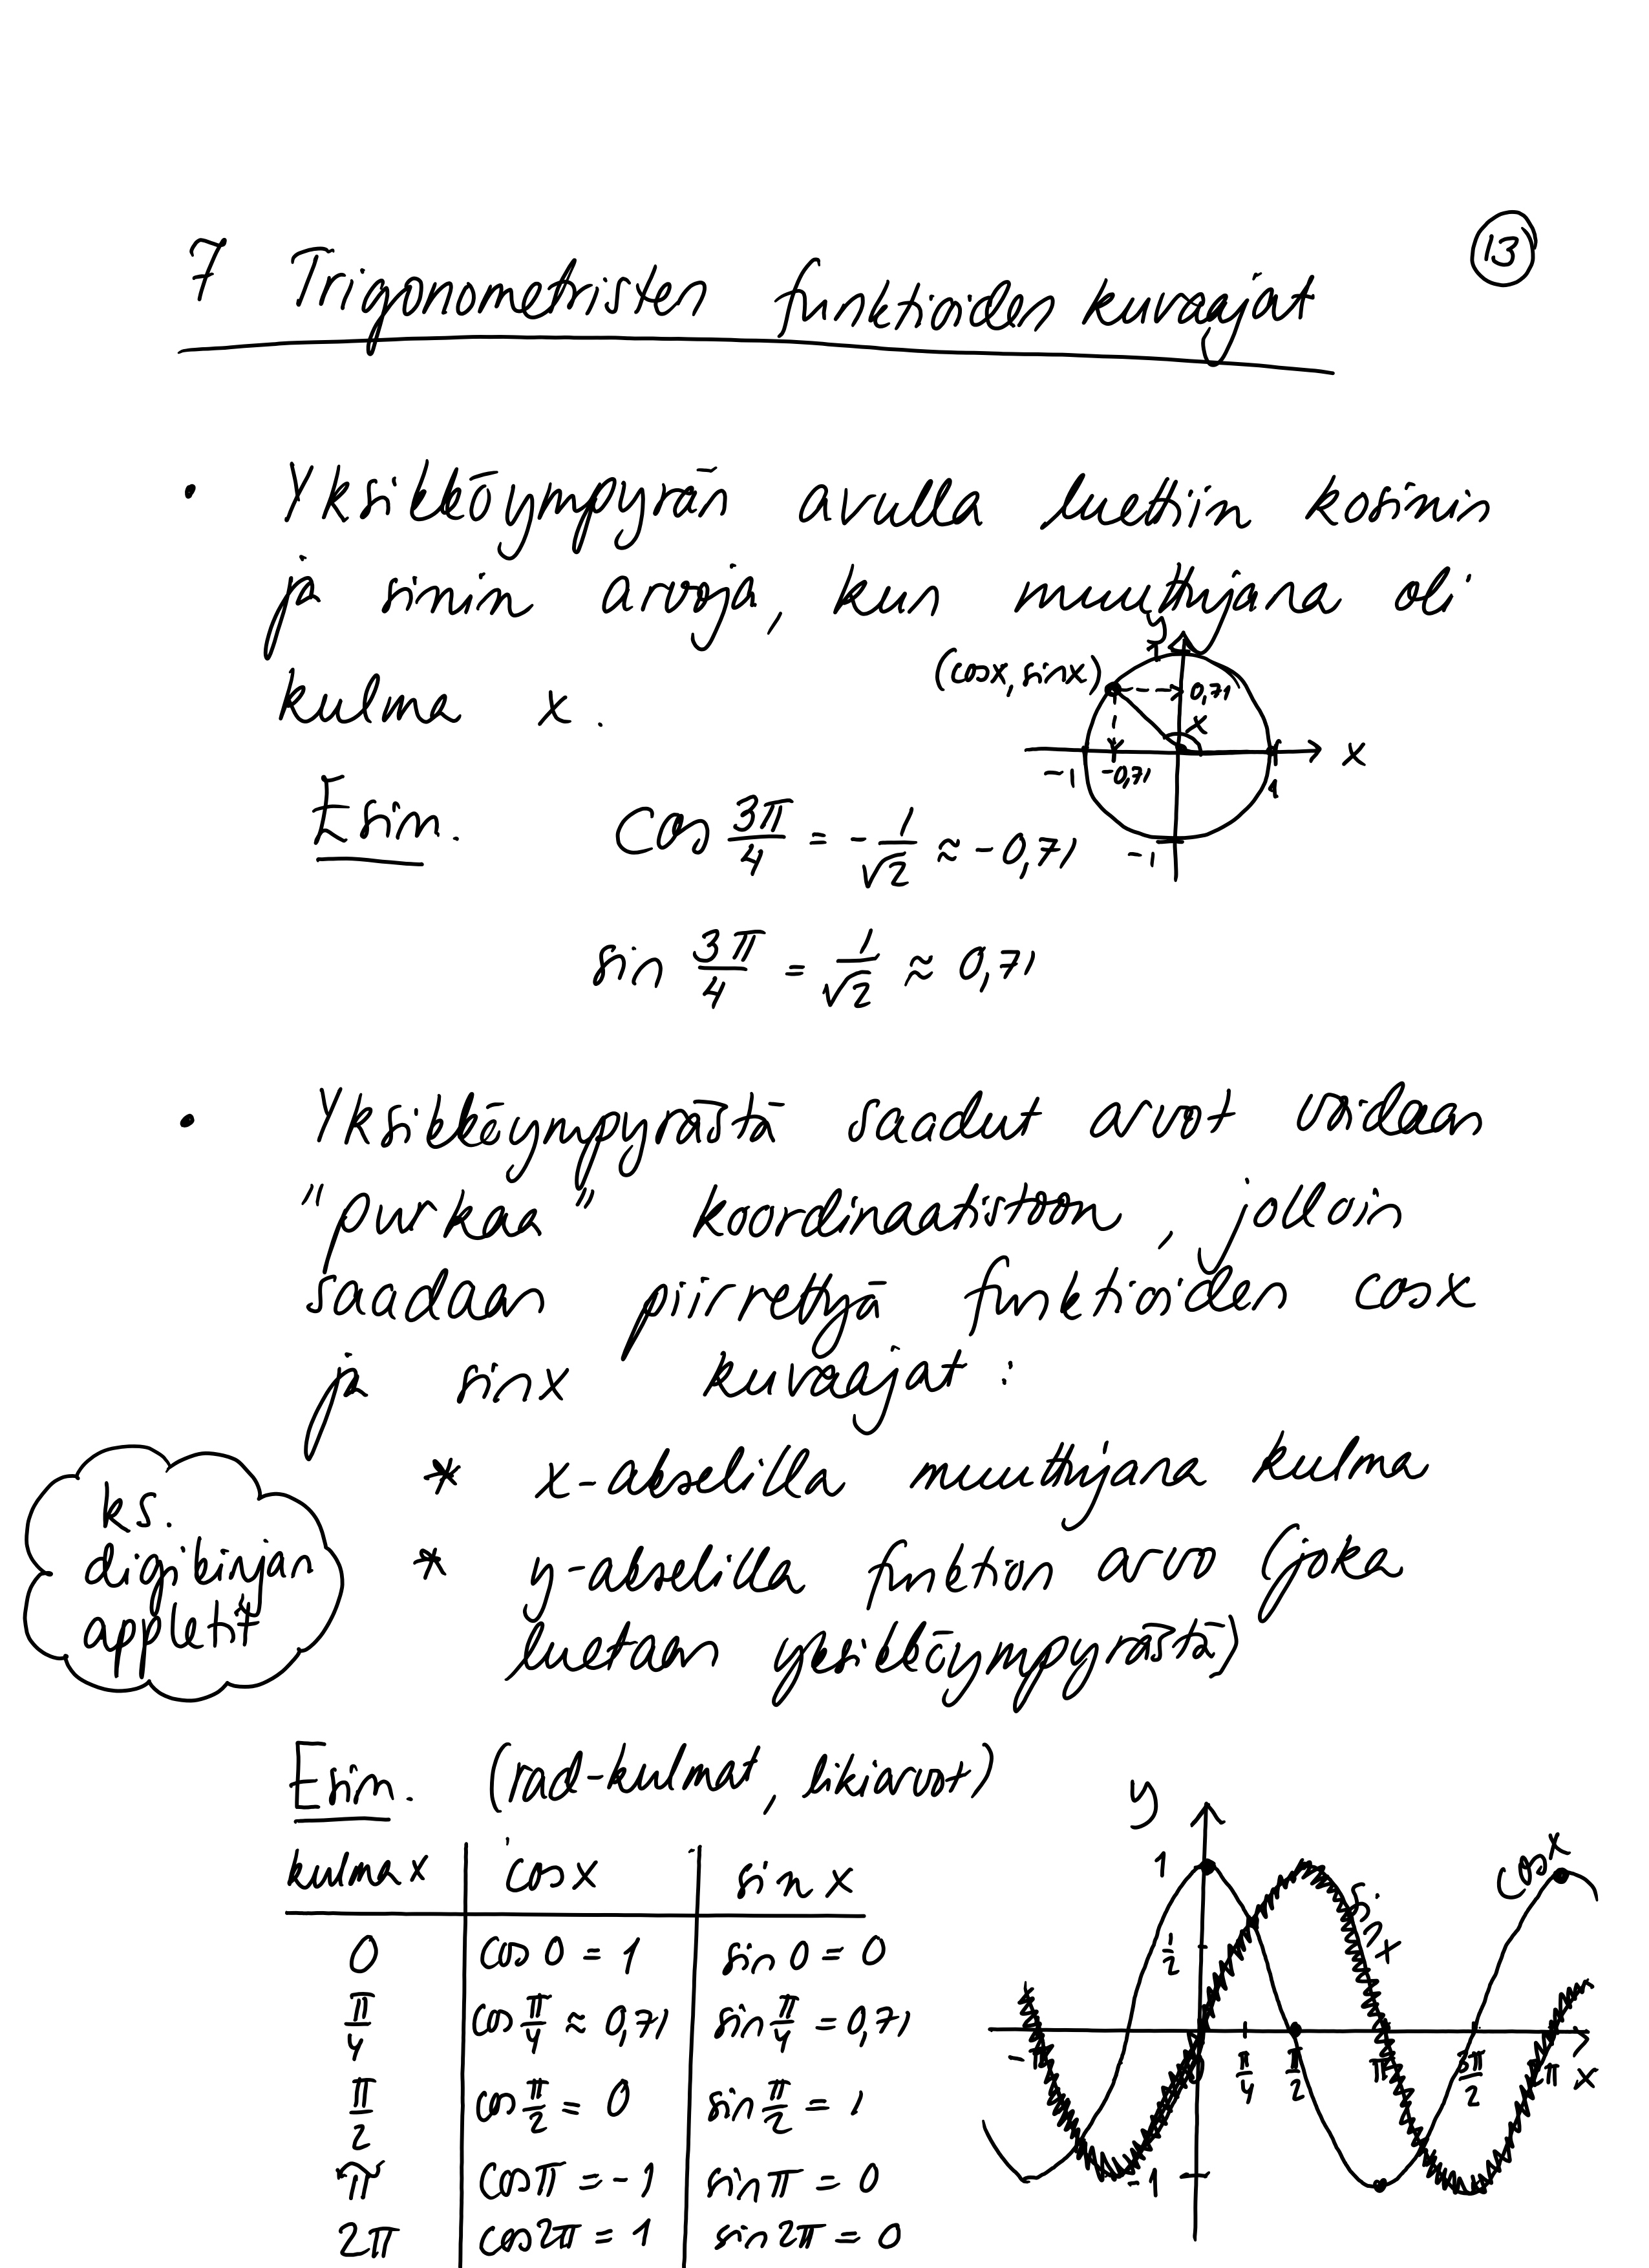 13
7 Trigonometristen funktioiden kuvaajat
• Yksikköympyrän avulla luettiin kosinin
ja sinin arvoja, kun muuttujana oli
kulma x.
y
1
(cosx, sinx)
0,71
x
x
-1
-0,71
1
-1
Esim. cos 3π/4 = -1/√2 ≈ -0,71
sin 3π/4 = 1/√2 ≈ 0,71
• Yksikköympyrästä saadut arvot voidaan
"purkaa" koordinaatistoon, jolloin
saadaan piirrettyä funktioiden cosx
ja sinx kuvaajat:
* x-akselilla muuttujana kulma
* y-akselilla funktion arvo (joka
luetaan yksikköympyrästä)
ks.
digikirjan
appletit
Esim. (rad-kulmat, likiarvot)
kulma x cosx sin x
0 cos 0 = 1 sin 0 = 0
π/4 cos π/4 ≈ 0,71 sin π/4 = 0,71
π/2 cos π/2 = 0 sin π/2 = 1
π cos π = -1 sin π = 0
2π cos 2π = 1 sin 2π = 0
y
1
cosx
sinx
1/2
-π 0 π/4 π/2 π 3π/2 2π x
-1